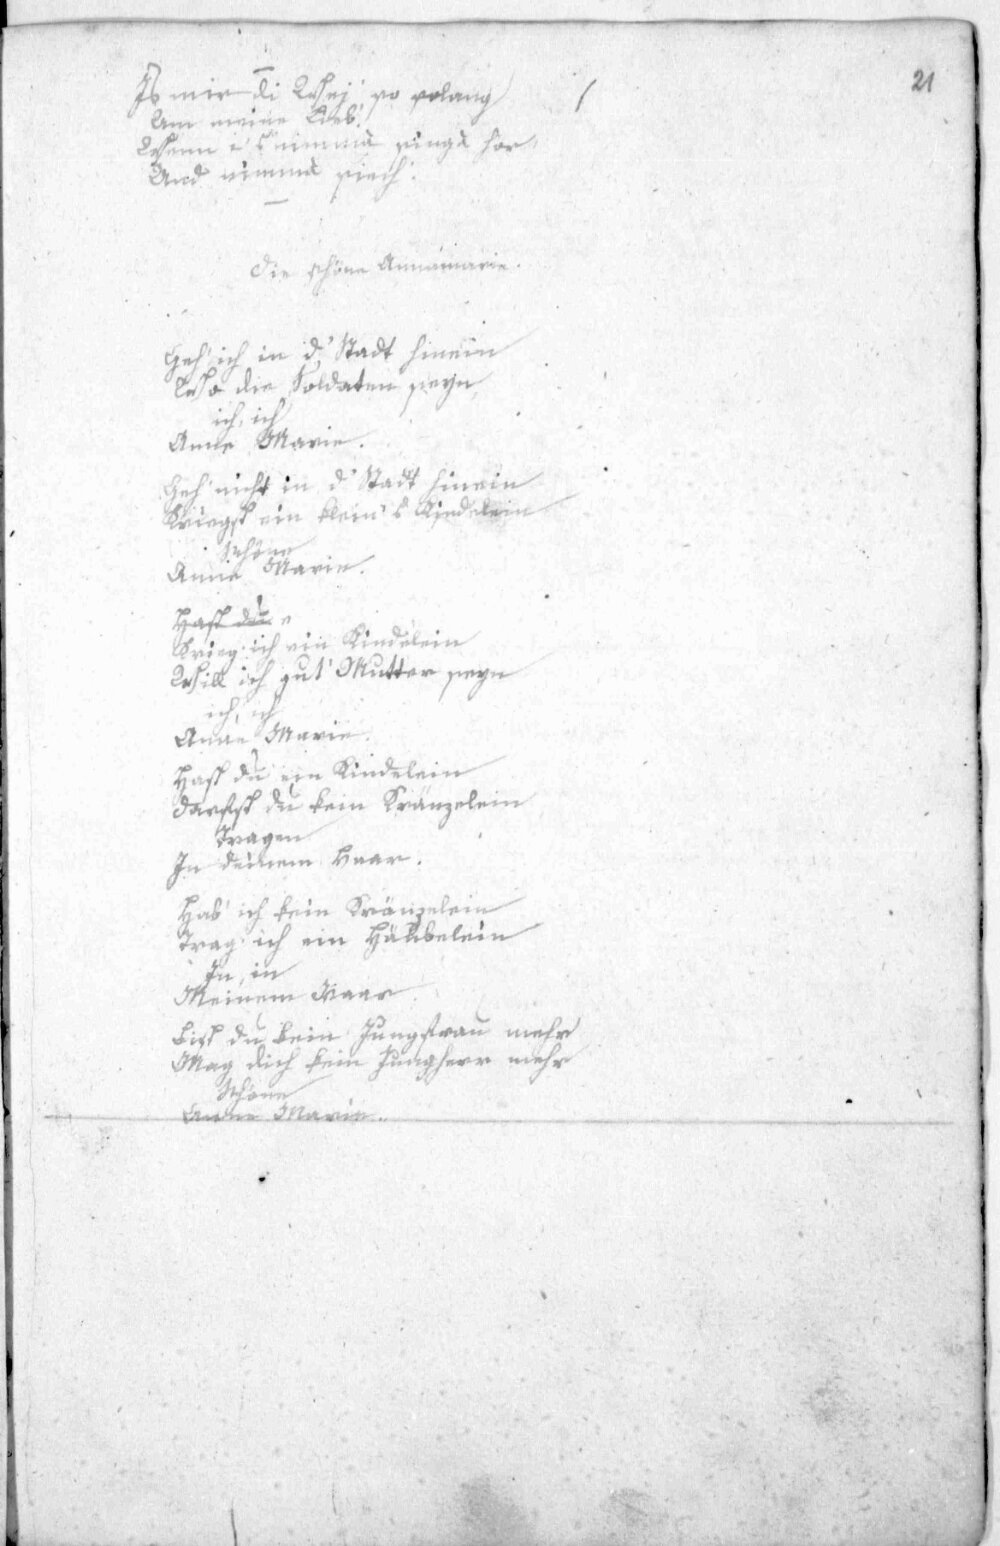 21
Is mir di Weij so solang
Um meine Lieb.
Wenn i s nimmä singä hör
Und nimmä siech.
Die schöne Annamarie.
Geh' ich in d' Stadt hinein
Wo die Soldaten seyn
ich, ich
Anne Marie.
Geh' nicht in d' Stadt hinein
Kriegst ein klein's Kindelein
Schöne
Anne Marie.
Hast du
Krieg ich ein Kindelein
Will ich gut' Mutter seyn
ich, ich
Anne Marie.
Hast du ein Kindelein
Darfst du kein Kränzelein
Tragen
In deinem Haar.
Hab' ich kein Kränzelein
Trag' ich ein Häubelein
In, in
Meinem Haar
Bist du kein Jungfrau mehr
Mag dich kein Jungherr mehr
Schöne
Anne Marie.